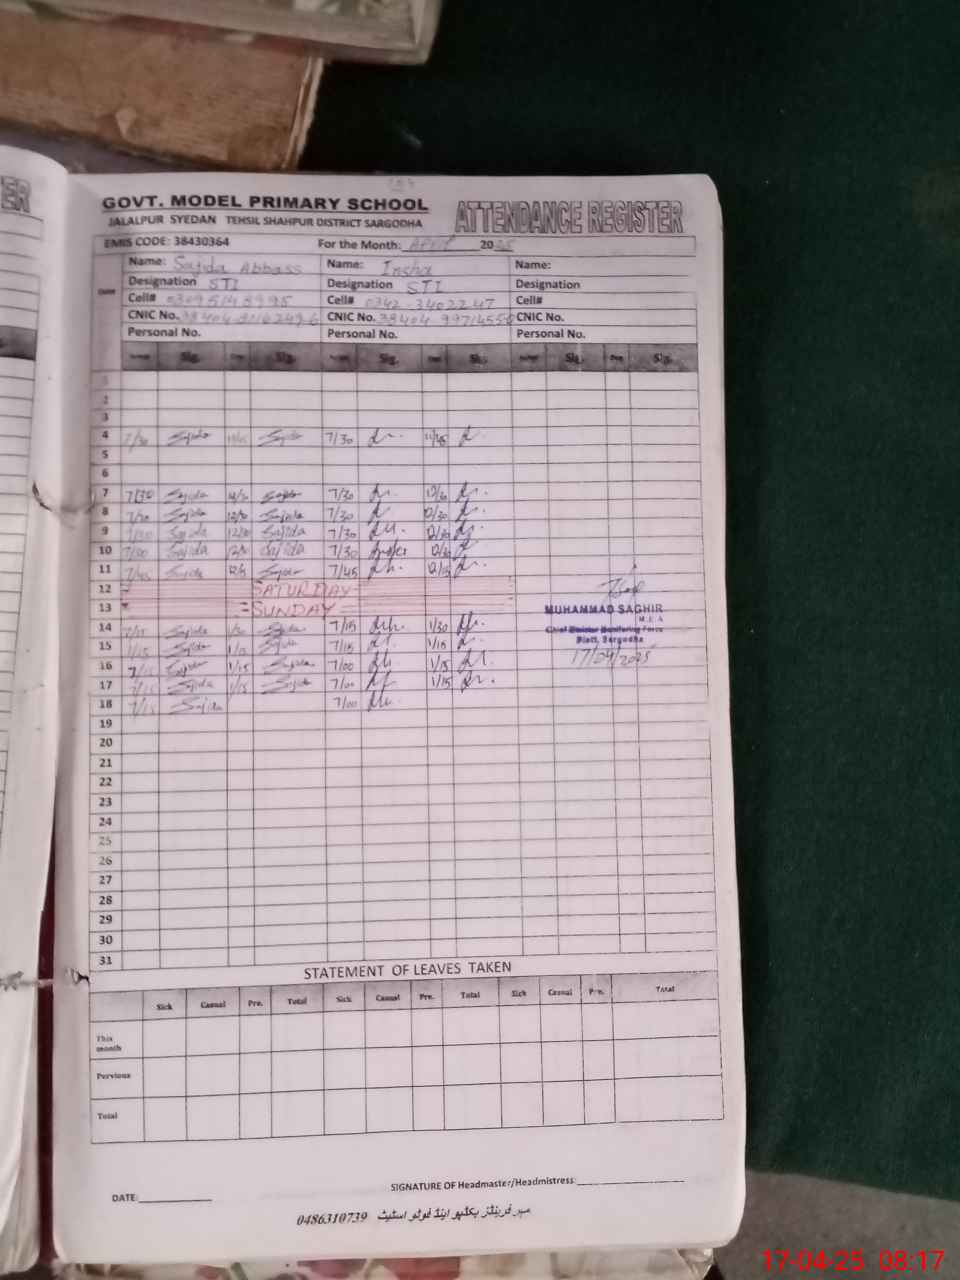 ER
GOVT. MODEL PRIMARY SCHOOL
JALALPUR SYEDAN TEHSIL SHAHPUR DISTRICT SARGODHA
ATTENDANCE REGISTER
EMIS CODE: 38430364 For the Month: April 2025
Date Name: Sajida Abbass Name: Insha Name:
Designation STI Designation STI Designation
Cell# 03095148995 Cell# 0342-3402247 Cell#
CNIC No. CNIC No. CNIC No.
Personal No. Personal No. Personal No.
Sig. Sig. Sig. Sig. Sig. Sig.
1
2
3
4 7/30 Sajida Sajida 7/30 11/45
5
6
7 7/30 Sajida Sajida 7/30 12/30
8 7/30 Sajida 12/30 Sajida 7/30 12/30
9 7/30 Sajida 12/30 Sajida 7/30 12/30
10 7/30 Sajida 12/30 Sajida 7/30 12/30
11 7/45 Sajida 12/15 Sajida 7/45 12/15
12 SATURDAY
13 = SUNDAY =
14 7/15 Sajida 1/30 Sajida 7/15 1/30
15 7/15 Sajida 1/15 Sajida 7/15 1/15
16 7/15 Sajida 1/15 Sajida 7/00 1/15
17 7/15 Sajida 1/15 Sajida 7/00 1/15
18 7/15 Sajida 7/00
MUHAMMAD SAGHIR
M.E.A
Chief Minister Monitoring Force
Distt. Sargodha
17/04/2025
19
20
21
22
23
24
25
26
27
28
29
30
31
STATEMENT OF LEAVES TAKEN
Sick Casual Pre. Total Sick Casual Pre. Total Sick Casual Pre. Total
This month
Pervious
Total
SIGNATURE OF Headmaster/Headmistress:
DATE:
0486310739 سپر فرینڈز بکڈپو اینڈ فوٹو اسٹیٹ
17-04-25 08:17